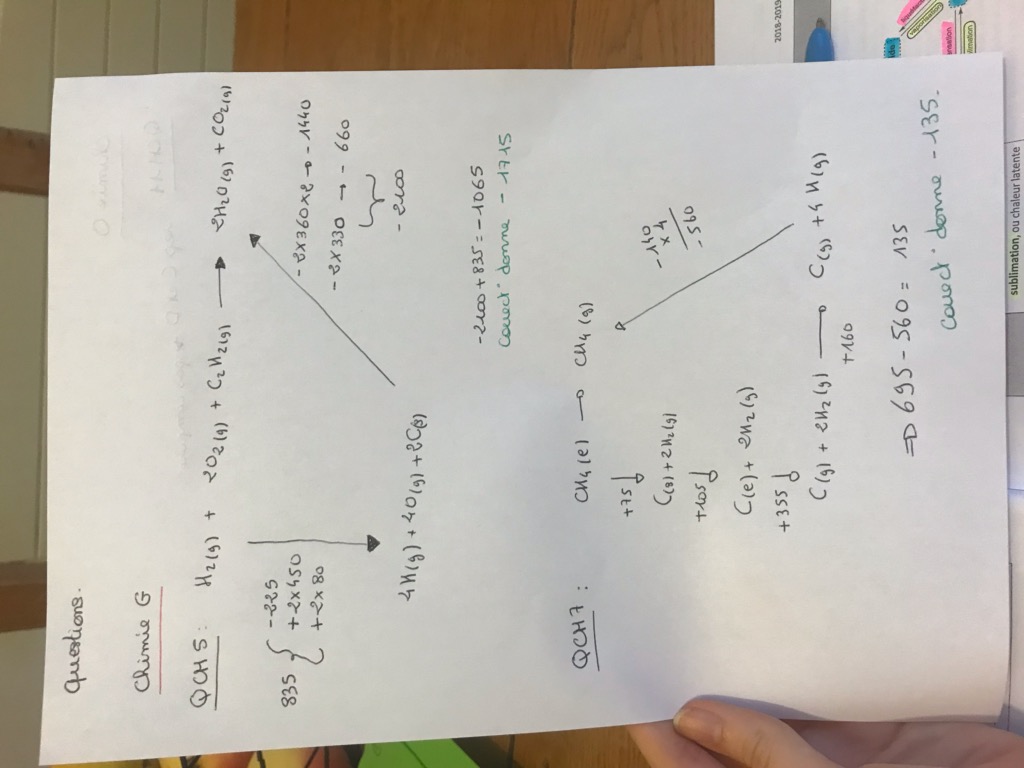 Questions.
Chimie G
QCM 5 :
H2(g) + 2O2(g) + C2H2(g) → 2H2O(g) + CO2(g)
835 { -225
+2x450
+2x80
-2x360x2 → -1440
-2x330 → -660
-2100
4H(g) + 4O(g) + 2C(g)
-2100 + 835 = -1065
Correct° donne -1715
QCM 7 :
CH4(l) → CH4(g)
+75
-140
x 4
-560
C(g) + 2H2(g)
+105
C(l) + 2H2(g)
+355
C(g) + 2H2(g) → C(g) + 4H(g)
+160
⇒ 695 - 560 = 135
Correct° donne -135.
2018-2019
sublimation, ou chaleur latente